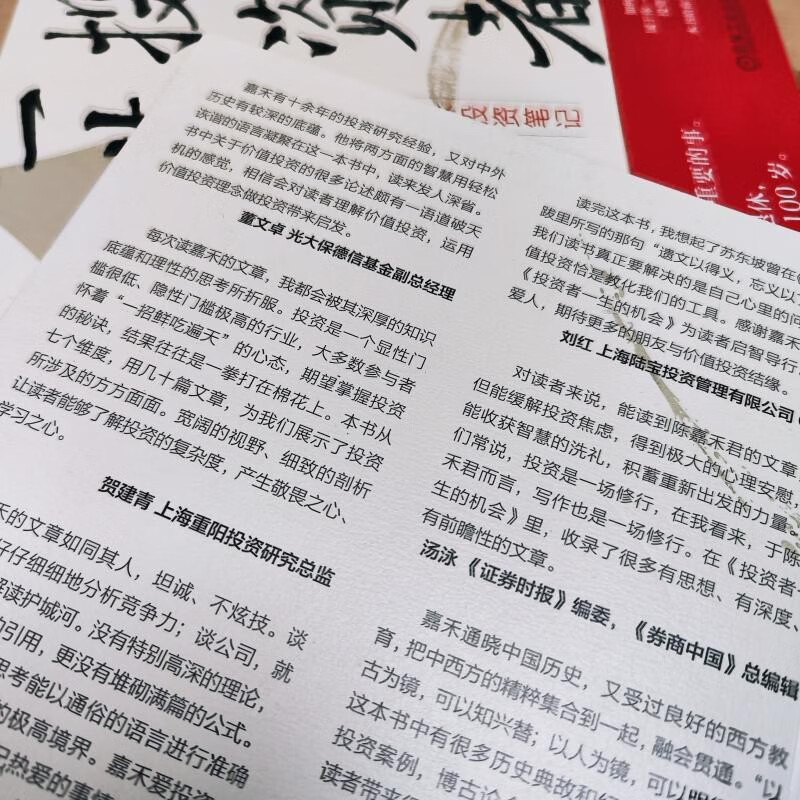 投资者
投资笔记
重要的事。
休，
100岁。
嘉禾有十余年的投资研究经验，又对中外
历史有较深的底蕴。他将两方面的智慧用轻松
诙谐的语言凝聚在这一本书中，读来发人深省。
书中关于价值投资的很多论述颇有一语道破天
机的感觉，相信会对读者理解价值投资，运用
价值投资理念做投资带来启发。
董文卓 光大保德信基金副总经理
每次读嘉禾的文章，我都会被其深厚的知识
底蕴和理性的思考所折服。投资是一个显性门
槛很低、隐性门槛极高的行业，大多数参与者
怀着“一招鲜吃遍天”的心态，期望掌握投资
的秘诀，结果往往是一拳打在棉花上。本书从
七个维度，用几十篇文章，为我们展示了投资
所涉及的方方面面。宽阔的视野、细致的剖析
让读者能够了解投资的复杂度，产生敬畏之心、
学习之心。
贺建青 上海重阳投资研究总监
的文章如同其人，坦诚、不炫技。谈
仔仔细细地分析竞争力；谈公司，就
解读护城河。没有特别高深的理论，
的引用，更没有堆砌满篇的公式。
思考能以通俗的语言进行准确
的极高境界。嘉禾爱投资
热爱的事情
读完这本书，我想起了苏东坡曾在
陂里所写的那句“遗文以得义，忘义以
我们读书真正要解决的是自己心里的问
值投资恰是教化我们的工具。感谢嘉禾
《投资者一生的机会》为读者启智导行，
爱人，期待更多的朋友与价值投资结缘。
刘红 上海陆宝投资管理有限公司
对读者来说，能读到陈嘉禾君的文章，
但能缓解投资焦虑，得到极大的心理安慰，
能收获智慧的洗礼，积蓄重新出发的力量。
们常说，投资是一场修行，在我看来，于陈
禾君而言，写作也是一场修行。在《投资者一
生的机会》里，收录了很多有思想、有深度、
有前瞻性的文章。
汤泳 《证券时报》编委，《券商中国》总编辑
嘉禾通晓中国历史，又受过良好的西方教
育，把中西方的精粹集合到一起，融会贯通。“以
古为镜，可以知兴替；以人为镜，可以明
这本书中有很多历史典故和
投资案例，博古论
读者带来